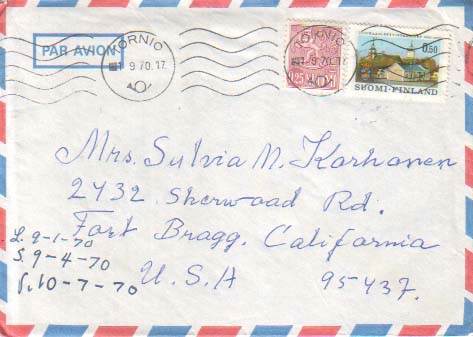 PAR AVION
TORNIO
1 9 70. 17
TORNIO
1-9 70. 17
0,25
0,50
SUOMI-FINLAND
Mrs. Sulvia M. Korhonen
2432 Sherwood Rd.
Fort Bragg. California
U.S.A 95437.
L. 9-1-70
S. 9-4-70
10-7-70